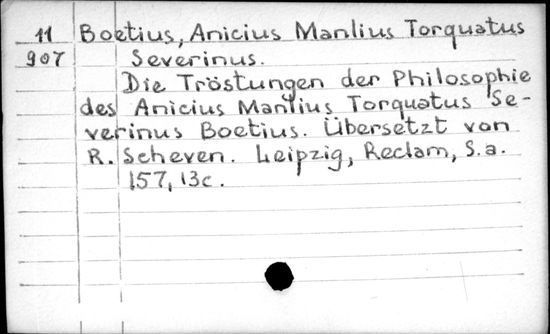 11 Boetius, Anicius Manlius Torquatus
907 Severinus.
Die Tröstungen der Philosophie
des Anicius Manlius Torquatus Se-
verinus Boetius. Übersetzt von
R. Scheven. Leipzig, Reclam, S.a.
157, 13c.